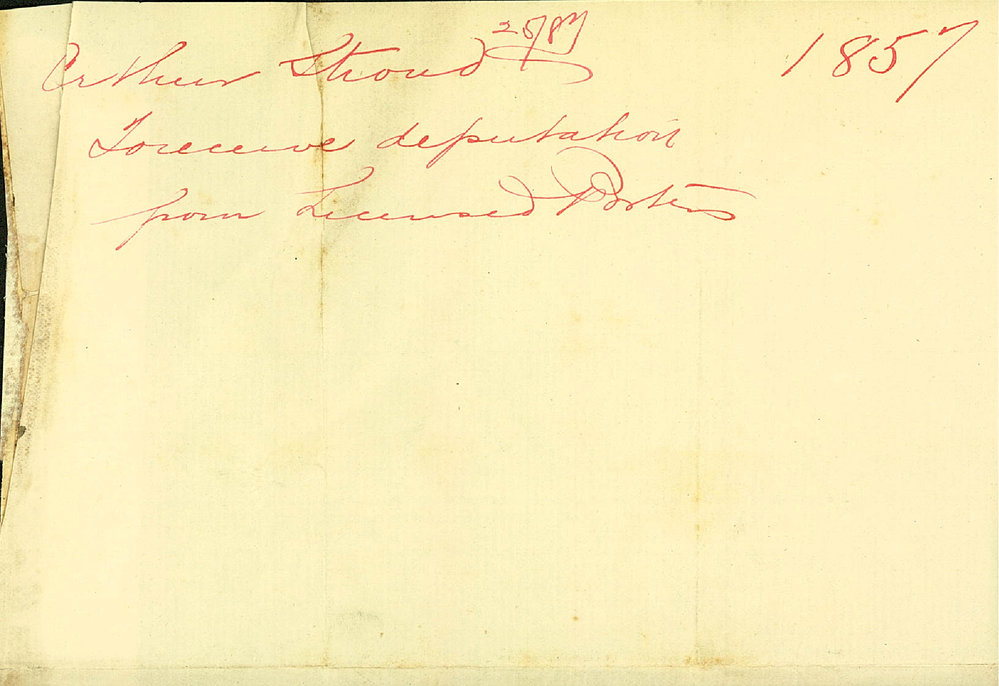 Arthur Stroud 1857
To receive deputation
from Licensed Porters